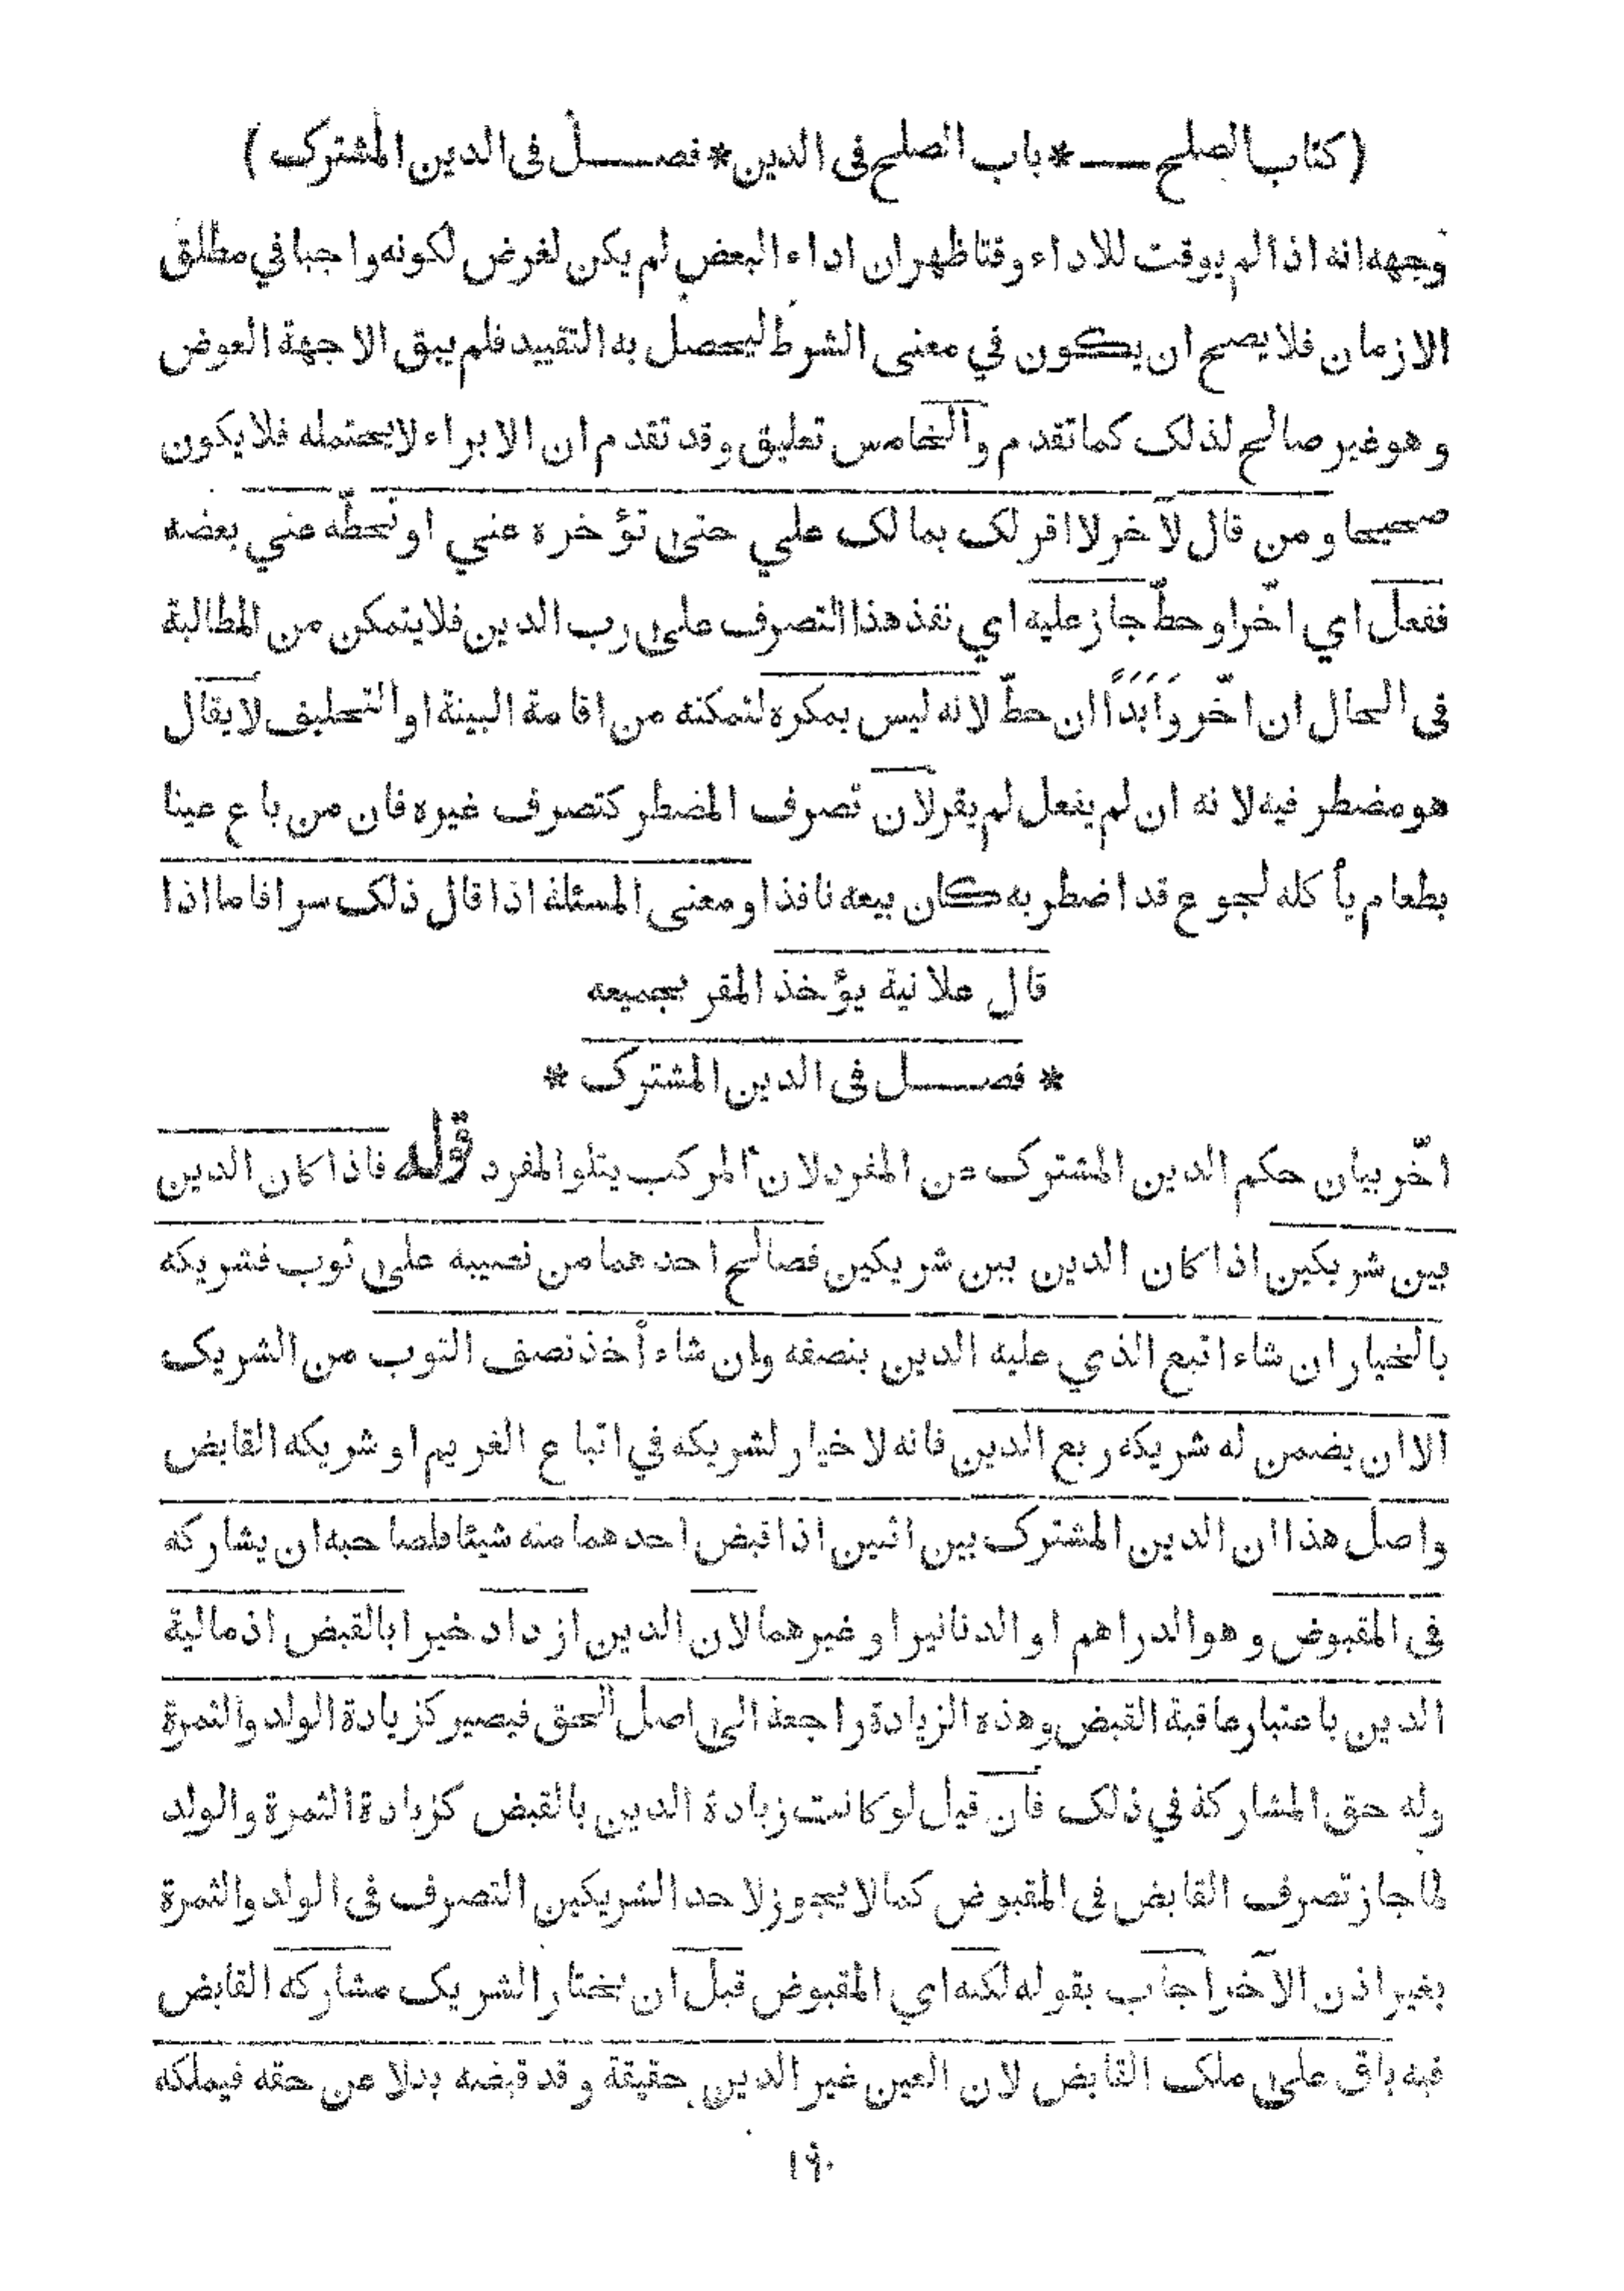 ( كتاب الصلح * باب الصلح فى الدين * فصل فى الدين المشترك )
وجهه انه اذا لم يوقت للاداء وقتا ظهر ان اداء البعض لم يكن لغرض لكونه واجبا في مطلق
الازمان فلا يصح ان يكون في معنى الشرط ليحصل به التقييد فلم يبق الا جهة العوض
وهو غير صالح لذلك كما تقدم والخامس تعليق وقد تقدم ان الابراء لا يحتمله فلا يكون
صحيحا ومن قال لآخر لا اقر لك بما لك علي حتى تؤخره عني او تحطّه عني بعضه
ففعل اي اخّر او حطّ جاز عليه اي نفذ هذا التصرف على رب الدين فلا يتمكن من المطالبة
فى الحال ان اخّر وَاَبَدًا ان حطّ لانه ليس بمكره لتمكنه من اقامة البينة او التحليف لا يقال
هو مضطر فيه لانه ان لم يفعل لم يقر لان تصرف المضطر كتصرف غيره فان من باع عينا
بطعام يأكله لجوع قد اضطر به كان بيعه نافذا ومعنى المسئلة اذا قال ذلك سرا فاما اذا
قال علانية يؤخذ المقر بجميعه
* فصل فى الدين المشترك *
اخّر بيان حكم الدين المشترك عن المفرد لان المركب يتلو المفرد قوله فاذا كان الدين
بين شريكين اذا كان الدين بين شريكين فصالح احدهما من نصيبه على ثوب فشريكه
بالخيار ان شاء اتبع الذي عليه الدين بنصفه وان شاء أخذ نصف الثوب من الشريك
الا ان يضمن له شريكه ربع الدين فانه لا خيار لشريكه في اتباع الغريم او شريكه القابض
واصل هذا ان الدين المشترك بين اثنين اذا قبض احدهما منه شيئا فلصاحبه ان يشاركه
فى المقبوض وهو الدراهم او الدنانير او غيرهما لان الدين ازداد خيرا بالقبض اذ مالية
الدين باعتبار عاقبة القبض وهذه الزيادة راجعة الى اصل الحق فيصير كزيادة الولد والثمرة
وله حق المشاركة في ذلك فان قيل لو كانت زيادة الدين بالقبض كزيادة الثمرة والولد
لما جاز تصرف القابض فى المقبوض كما لا يجوز لاحد الشريكين التصرف فى الولد والثمرة
بغير اذن الآخر اجاب بقوله لكنه اي المقبوض قبل ان يختار الشريك مشاركة القابض
فيه باق على ملك القابض لان العين غير الدين حقيقة وقد قبضه بدلا عن حقه فيملكه
١٩٠